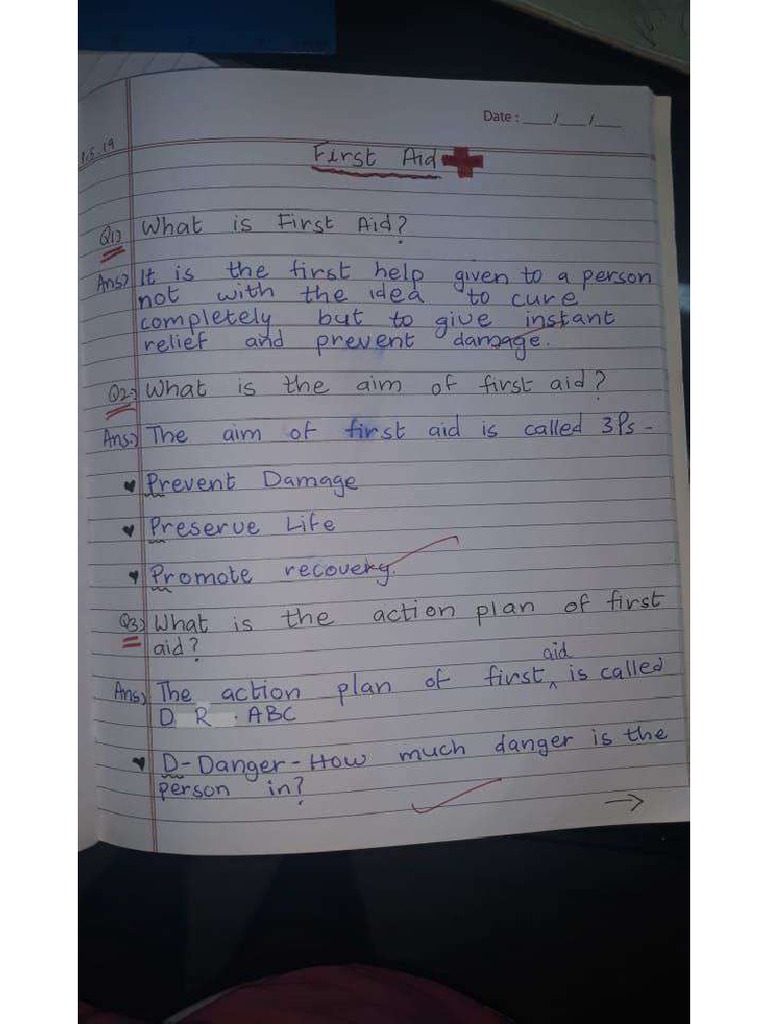 Date : ___/___/___
1.5.19
First Aid
Q1) What is First Aid?
Ans) It is the first help given to a person
not with the idea to cure
completely but to give instant
relief and prevent damage.
Q2) What is the aim of first aid?
Ans) The aim of first aid is called 3Ps -
Prevent Damage
Preserve Life
Promote recovery.
Q3) What is the action plan of first
aid?
Ans) The action plan of first aid is called
D R . ABC
D - Danger - How much danger is the
person in?